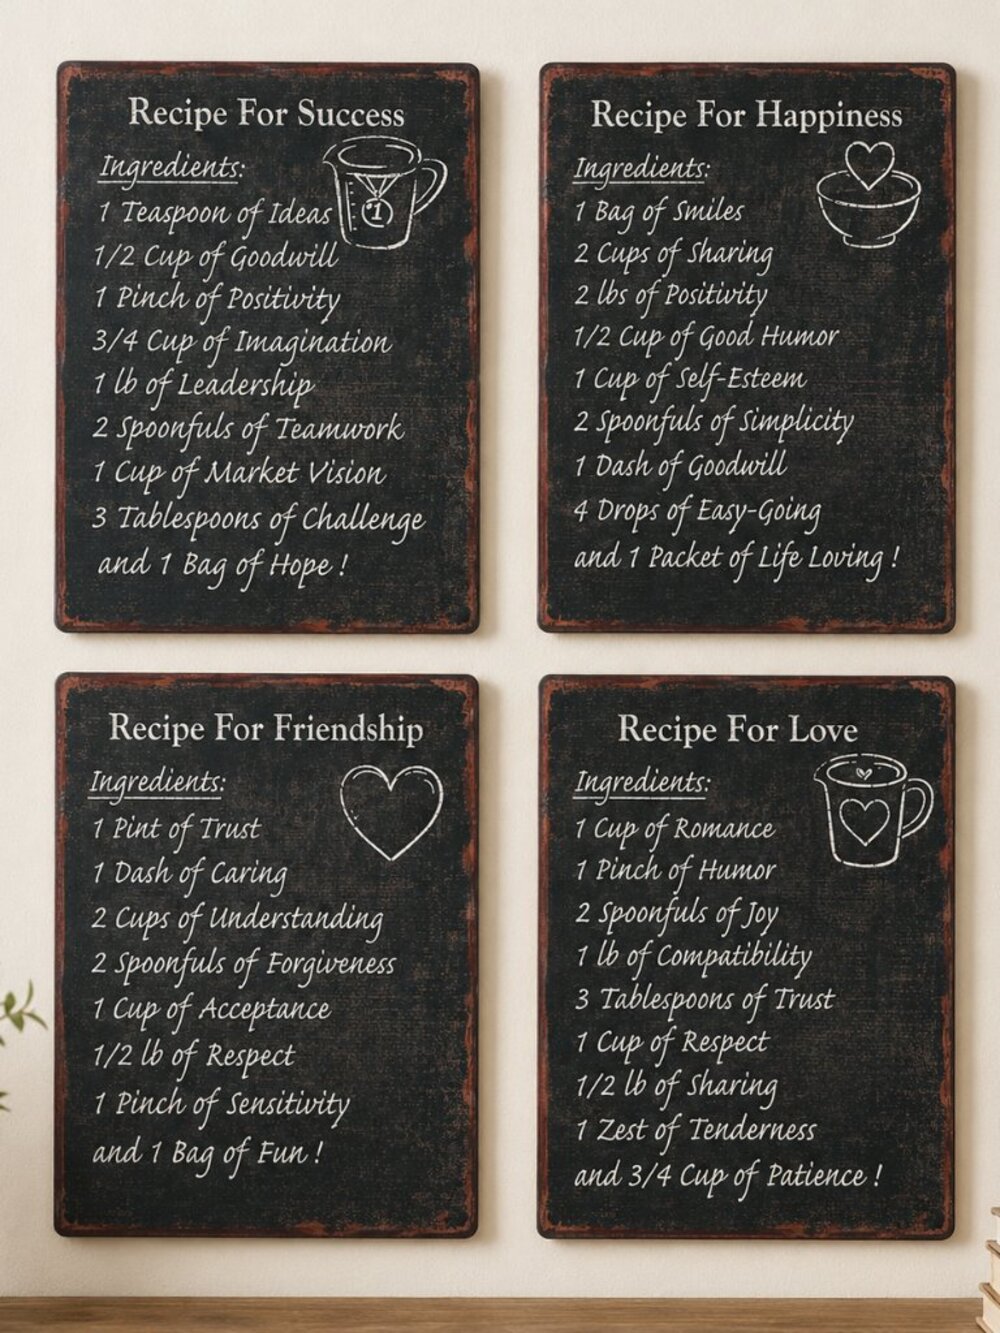 Recipe For Success
Ingredients:
1 Teaspoon of Ideas
1
1/2 Cup of Goodwill
1 Pinch of Positivity
3/4 Cup of Imagination
1 lb of Leadership
2 Spoonfuls of Teamwork
1 Cup of Market Vision
3 Tablespoons of Challenge
and 1 Bag of Hope !
Recipe For Happiness
Ingredients:
1 Bag of Smiles
2 Cups of Sharing
2 lbs of Positivity
1/2 Cup of Good Humor
1 Cup of Self-Esteem
2 Spoonfuls of Simplicity
1 Dash of Goodwill
4 Drops of Easy-Going
and 1 Packet of Life Loving !
Recipe For Friendship
Ingredients:
1 Pint of Trust
1 Dash of Caring
2 Cups of Understanding
2 Spoonfuls of Forgiveness
1 Cup of Acceptance
1/2 lb of Respect
1 Pinch of Sensitivity
and 1 Bag of Fun !
Recipe For Love
Ingredients:
1 Cup of Romance
1 Pinch of Humor
2 Spoonfuls of Joy
1 lb of Compatibility
3 Tablespoons of Trust
1 Cup of Respect
1/2 lb of Sharing
1 Zest of Tenderness
and 3/4 Cup of Patience !